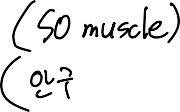 (SO muscle)
(안구